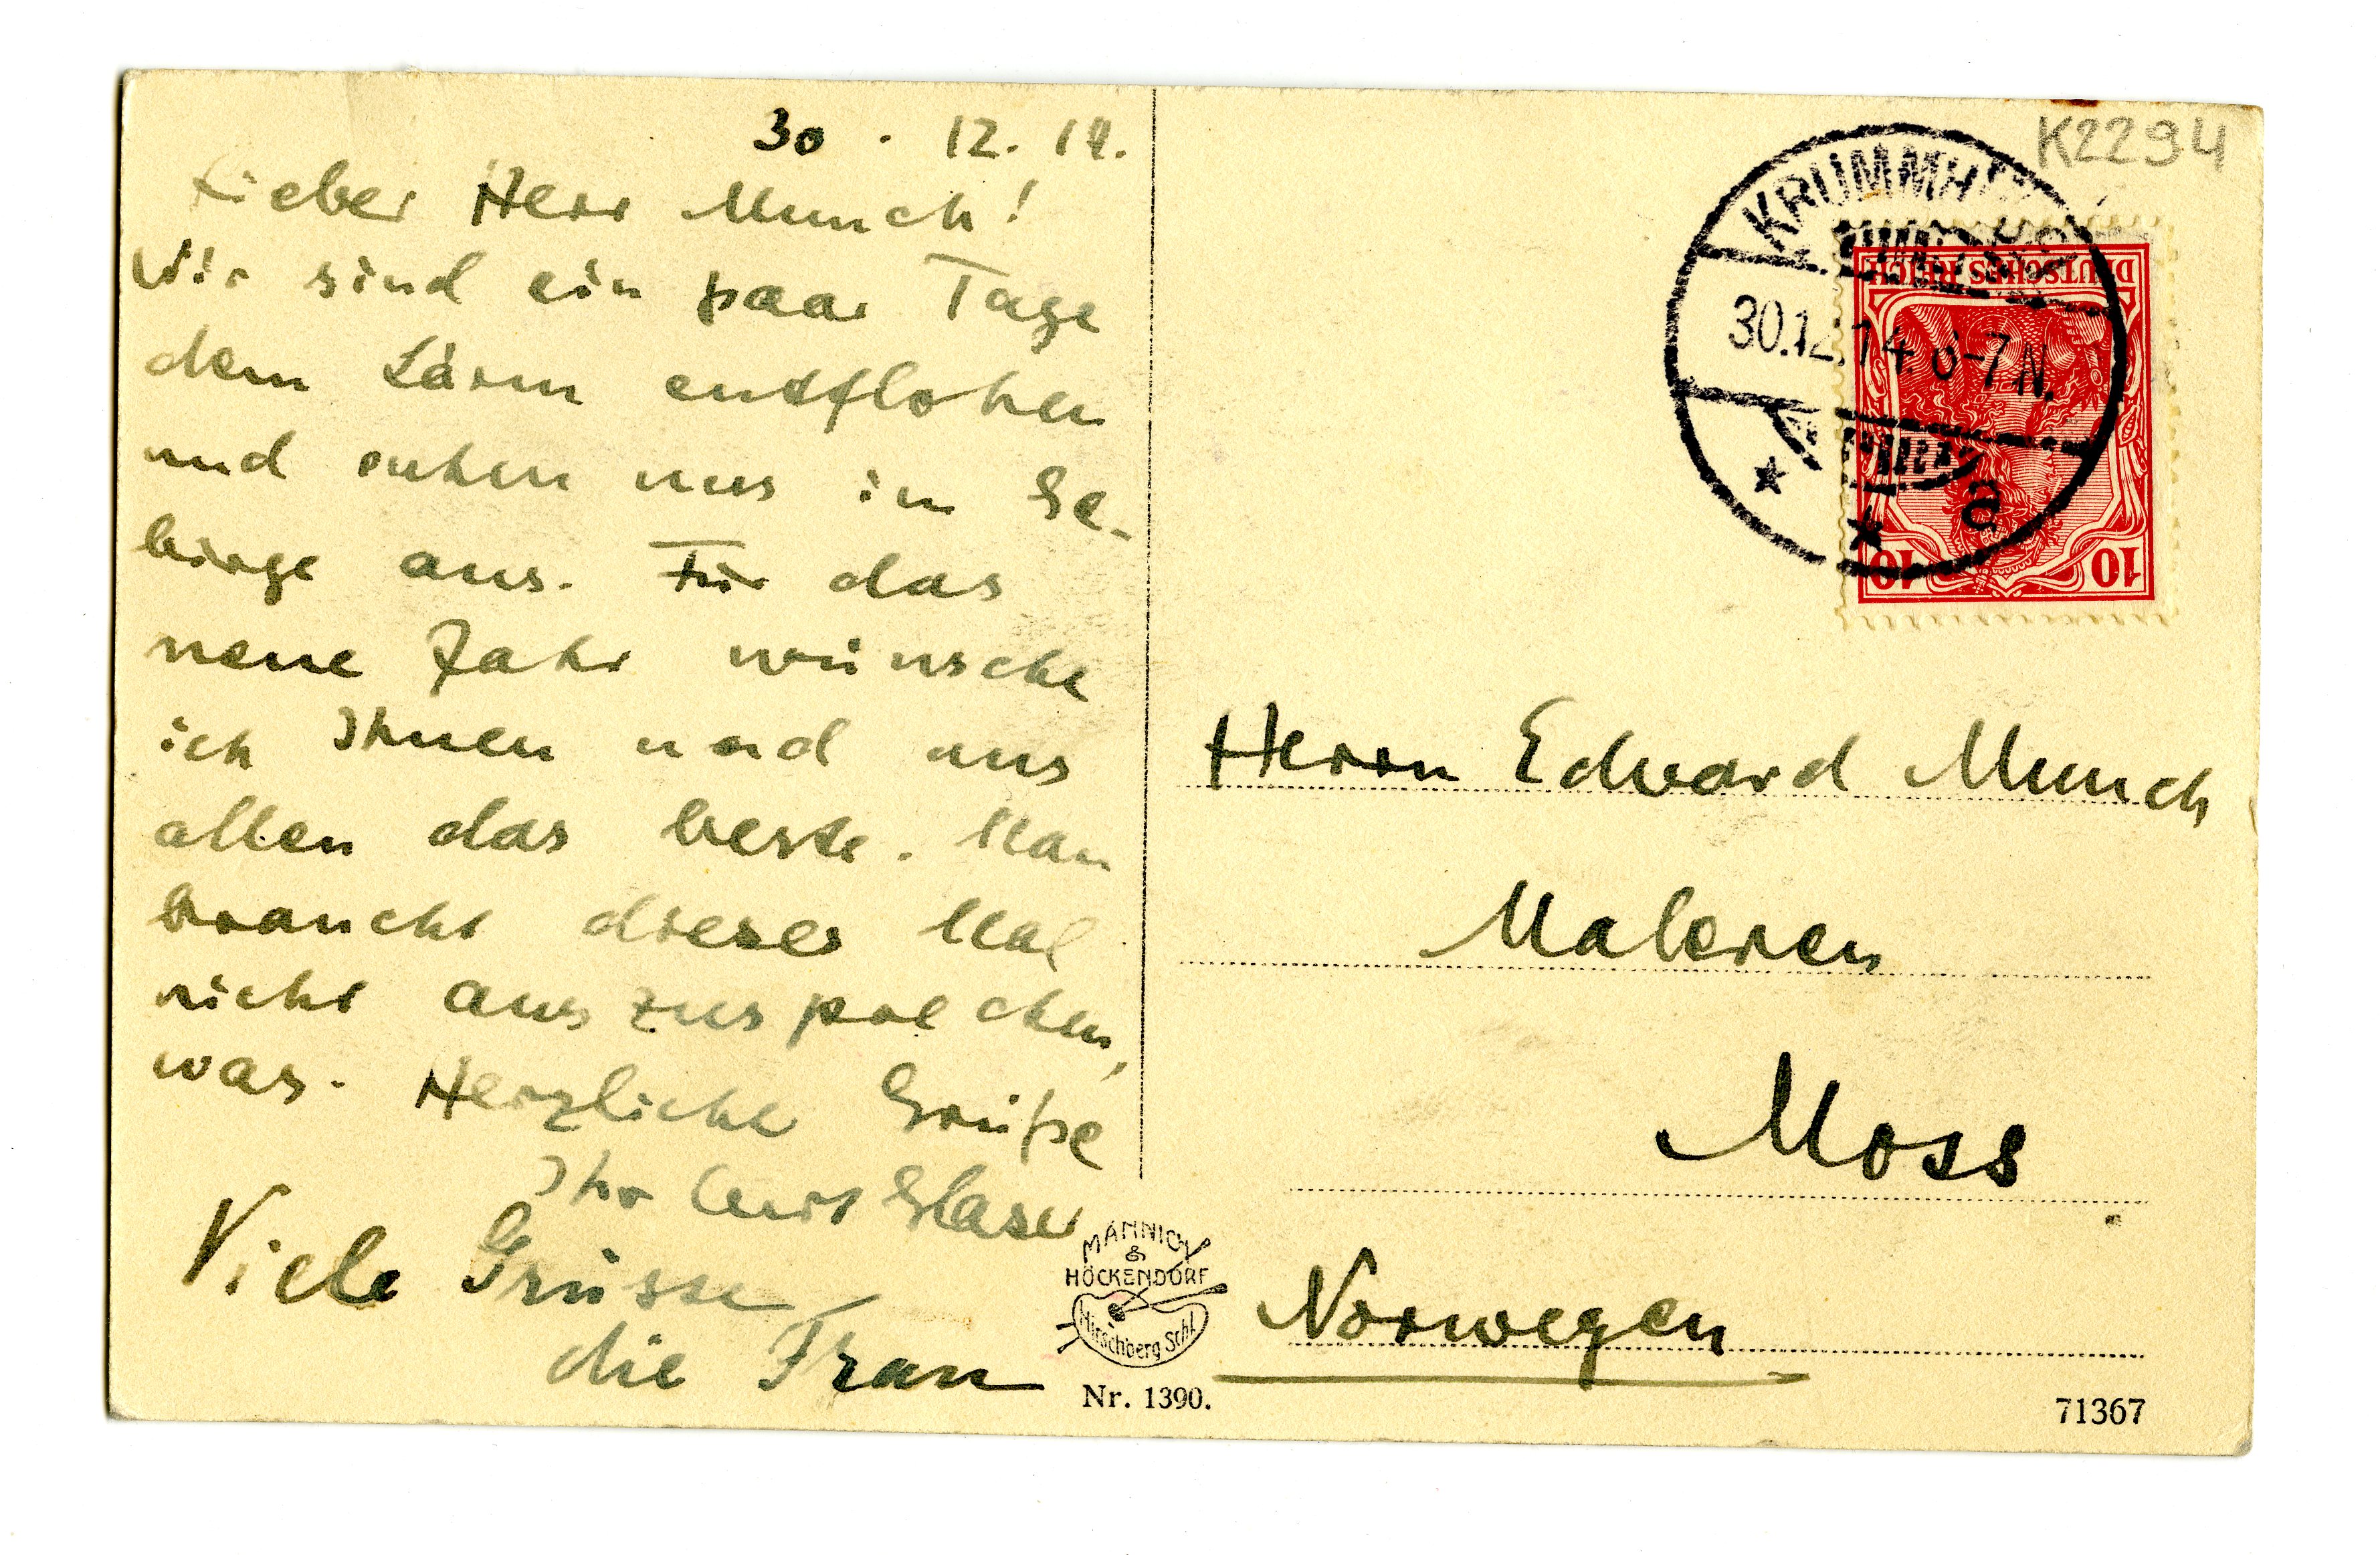 30. 12. 14.
Lieber Herr Munch!
Wir sind ein paar Tage
dem Lärm entflohen
und ruhen uns im Ge-
birge aus. Für das
neue Jahr wünsche
ich Ihnen und uns
allen das beste. Man
braucht dieses Mal
nicht auszusprechen,
was. Herzliche Grüße
Ihr Curt Glaser
Viele Grüsse
die Frau
MANNICH
&
HÖCKENDORF
Hirschberg Schl.
Nr. 1390.
K2294
KRUMMH
30.12.14. 6-7 N.
a
DEUTSCHES REICH
10 10
Herrn Edvard Munch
Maleren
Moss
Norwegen
71367